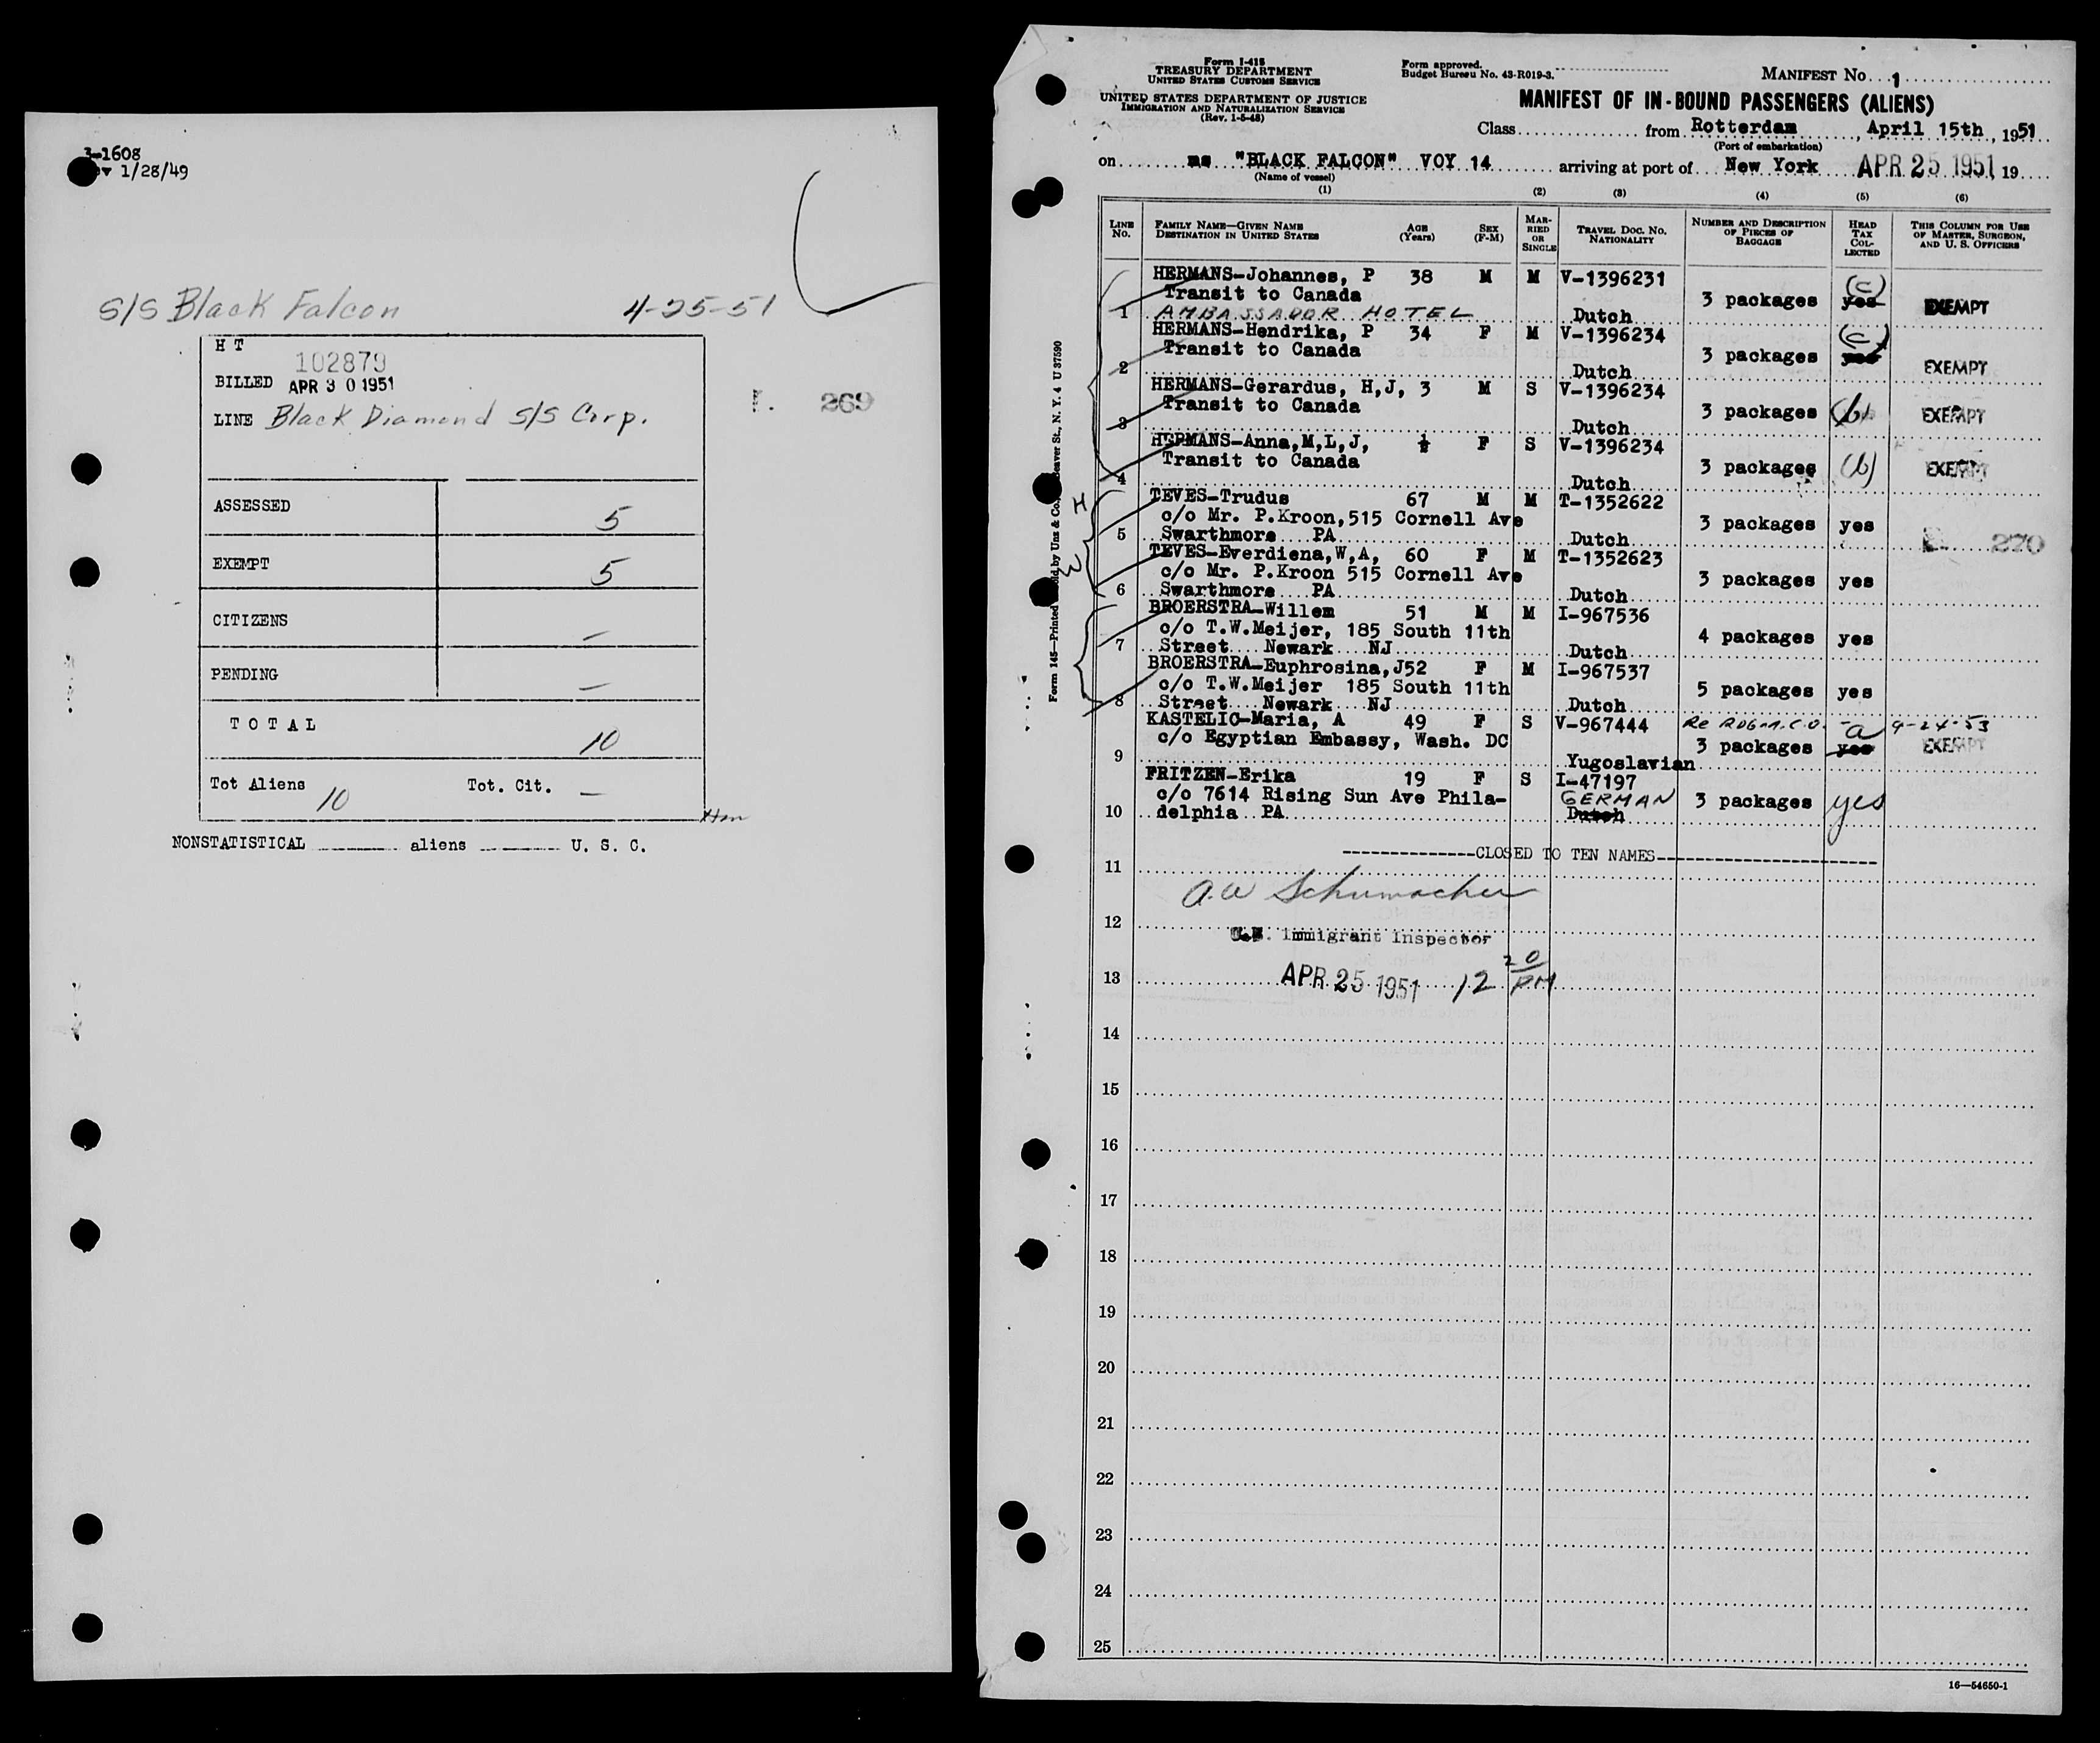 3-1608
1/28/49
S/S Black Falcon 4-25-51
H T
102879
BILLED APR 30 1951
LINE Black Diamond S/S Corp.
269
ASSESSED 5
EXEMPT 5
CITIZENS —
PENDING —
TOTAL 10
Tot Aliens 10 Tot. Cit. —
NONSTATISTICAL aliens U. S. C.
Form I-415
TREASURY DEPARTMENT
UNITED STATES CUSTOMS SERVICE
UNITED STATES DEPARTMENT OF JUSTICE
IMMIGRATION AND NATURALIZATION SERVICE
(Rev. 1-5-48)
Form approved.
Budget Bureau No. 43-R019-3.
MANIFEST No. 1
MANIFEST OF IN-BOUND PASSENGERS (ALIENS)
Class from Rotterdam, April 15th, 1951
(Port of embarkation)
on ms "BLACK FALCON" VOY 14 arriving at port of New York APR 25 1951, 19
(Name of vessel)
(1) (2) (3) (4) (5) (6)
LINE No. FAMILY NAME—GIVEN NAME DESTINATION IN UNITED STATES AGE (Years) SEX (F-M) MARRIED OR SINGLE TRAVEL DOC. NO. NATIONALITY NUMBER AND DESCRIPTION OF PIECES OF BAGGAGE HEAD TAX COLLECTED THIS COLUMN FOR USE OF MASTER, SURGEON, AND U. S. OFFICERS
HERMANS-Johannes, P 38 M M V-1396231 (c)
Transit to Canada 3 packages yes EXEMPT
1 AMBASSADOR HOTEL Dutch
HERMANS-Hendrika, P 34 F M V-1396234 (c)
Transit to Canada 3 packages yes EXEMPT
2 Dutch
HERMANS-Gerardus, H,J, 3 M S V-1396234
Transit to Canada 3 packages (b) EXEMPT
3 Dutch
HERMANS-Anna,M,L,J, ½ F S V-1396234
Transit to Canada 3 packages (b) EXEMPT
4 Dutch
TEVES-Trudus 67 M M T-1352622
c/o Mr. P.Kroon,515 Cornell Ave 3 packages yes
5 Swarthmore PA Dutch 270
TEVES-Everdiena,W,A, 60 F M T-1352623
c/o Mr. P.Kroon 515 Cornell Ave 3 packages yes
6 Swarthmore PA Dutch
BROERSTRA-Willem 51 M M I-967536
c/o T.W.Meijer, 185 South 11th 4 packages yes
7 Street Newark NJ Dutch
BROERSTRA-Euphrosina,J52 F M I-967537
c/o T.W.Meijer 185 South 11th 5 packages yes
8 Street Newark NJ Dutch
KASTELIC-Maria, A 49 F S V-967444 Re a 9-24-53
c/o Egyptian Embassy, Wash. DC 3 packages yes EXEMPT
9 Yugoslavian
FRITZEN-Erika 19 F S I-47197
c/o 7614 Rising Sun Ave Phila- GERMAN 3 packages yes
10 delphia PA Dutch
CLOSED TO TEN NAMES
11
A.W Schumacher
12
U.S. Immigrant Inspector
13 APR 25 1951 12 20 PM
14
15
16
17
18
19
20
21
22
23
24
25
16—54650-1
H
W